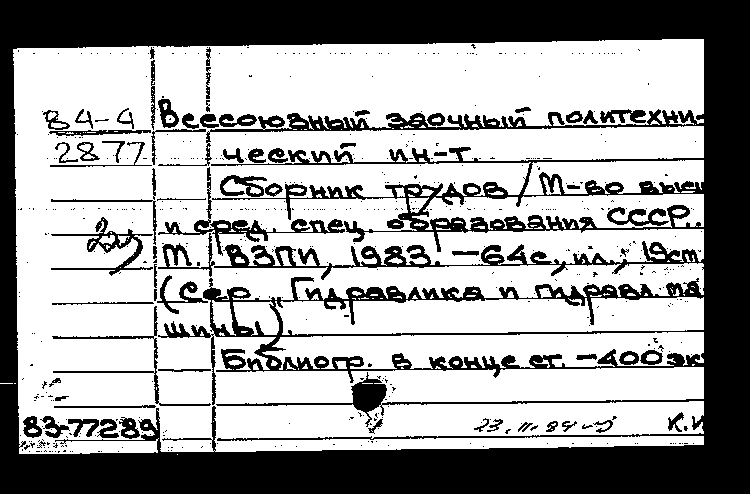 84-4 Всесоюзный заочный политехни-
2877 ческий ин-т.
Сборник трудов / М-во высш
и сред. спец. образования СССР..
М. : ВЗПИ, 1983. — 64 с., ил.; 19 см.
(Сер. „Гидравлика и гидравл. ма
шины).
Библиогр. в конце ст. — 400 эк
83-77289 23.11.84 К.И